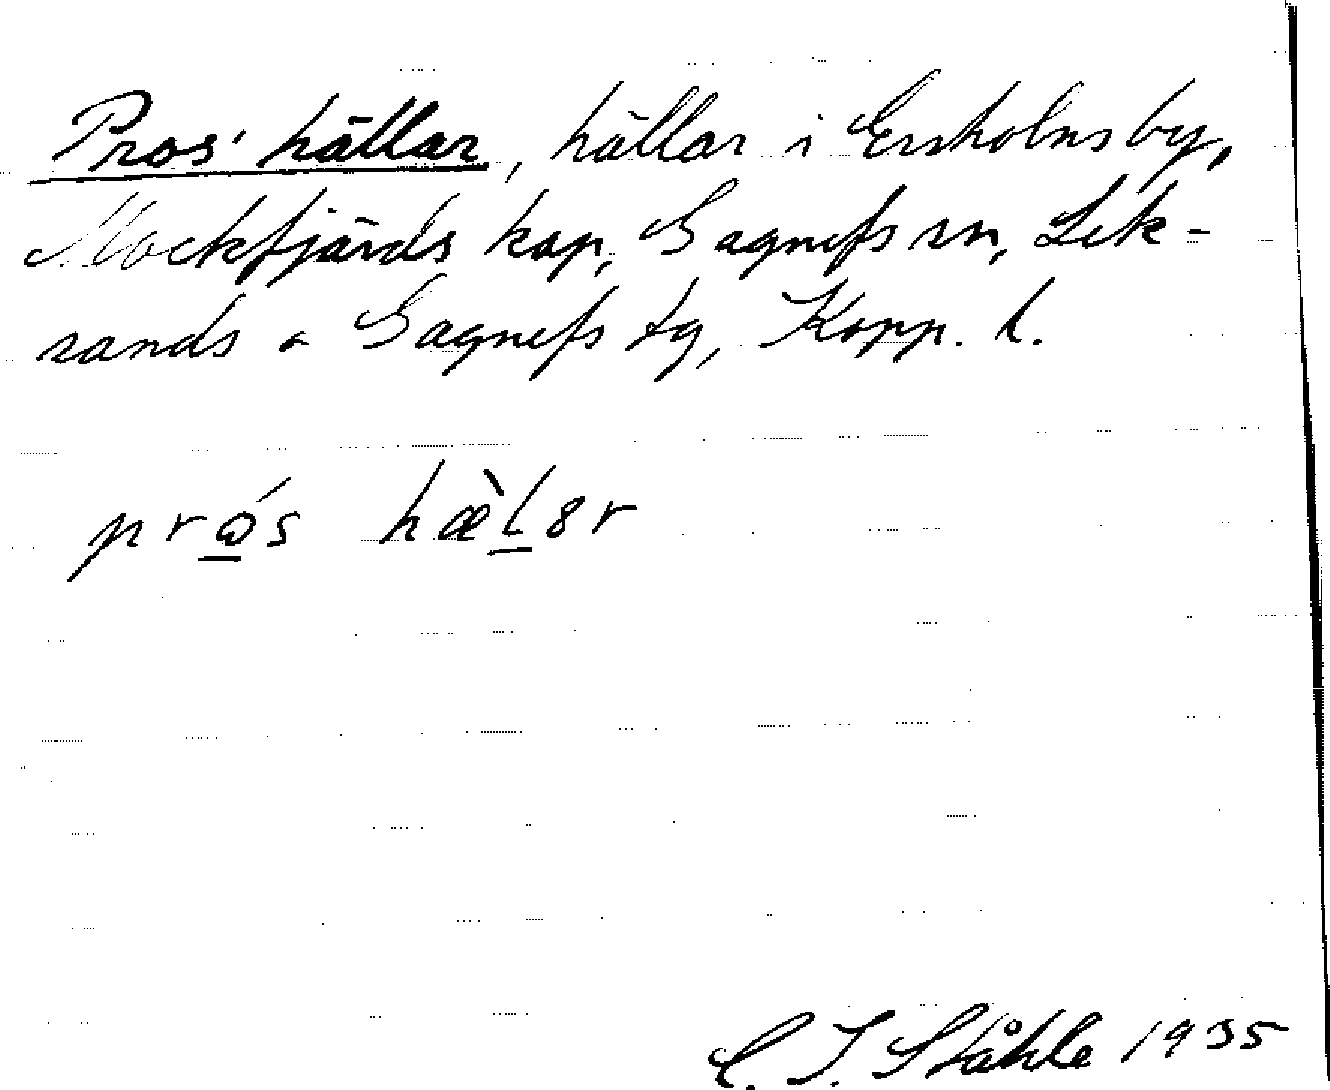 Pros' hällar, hällar i Ersholns by,
Mockfjärds kap, Gagnefs sn, Lek-
sands o Gagnefs tg, Kopp. l.
prɷ́s hæ̀lər
C. I. Ståhle 1935